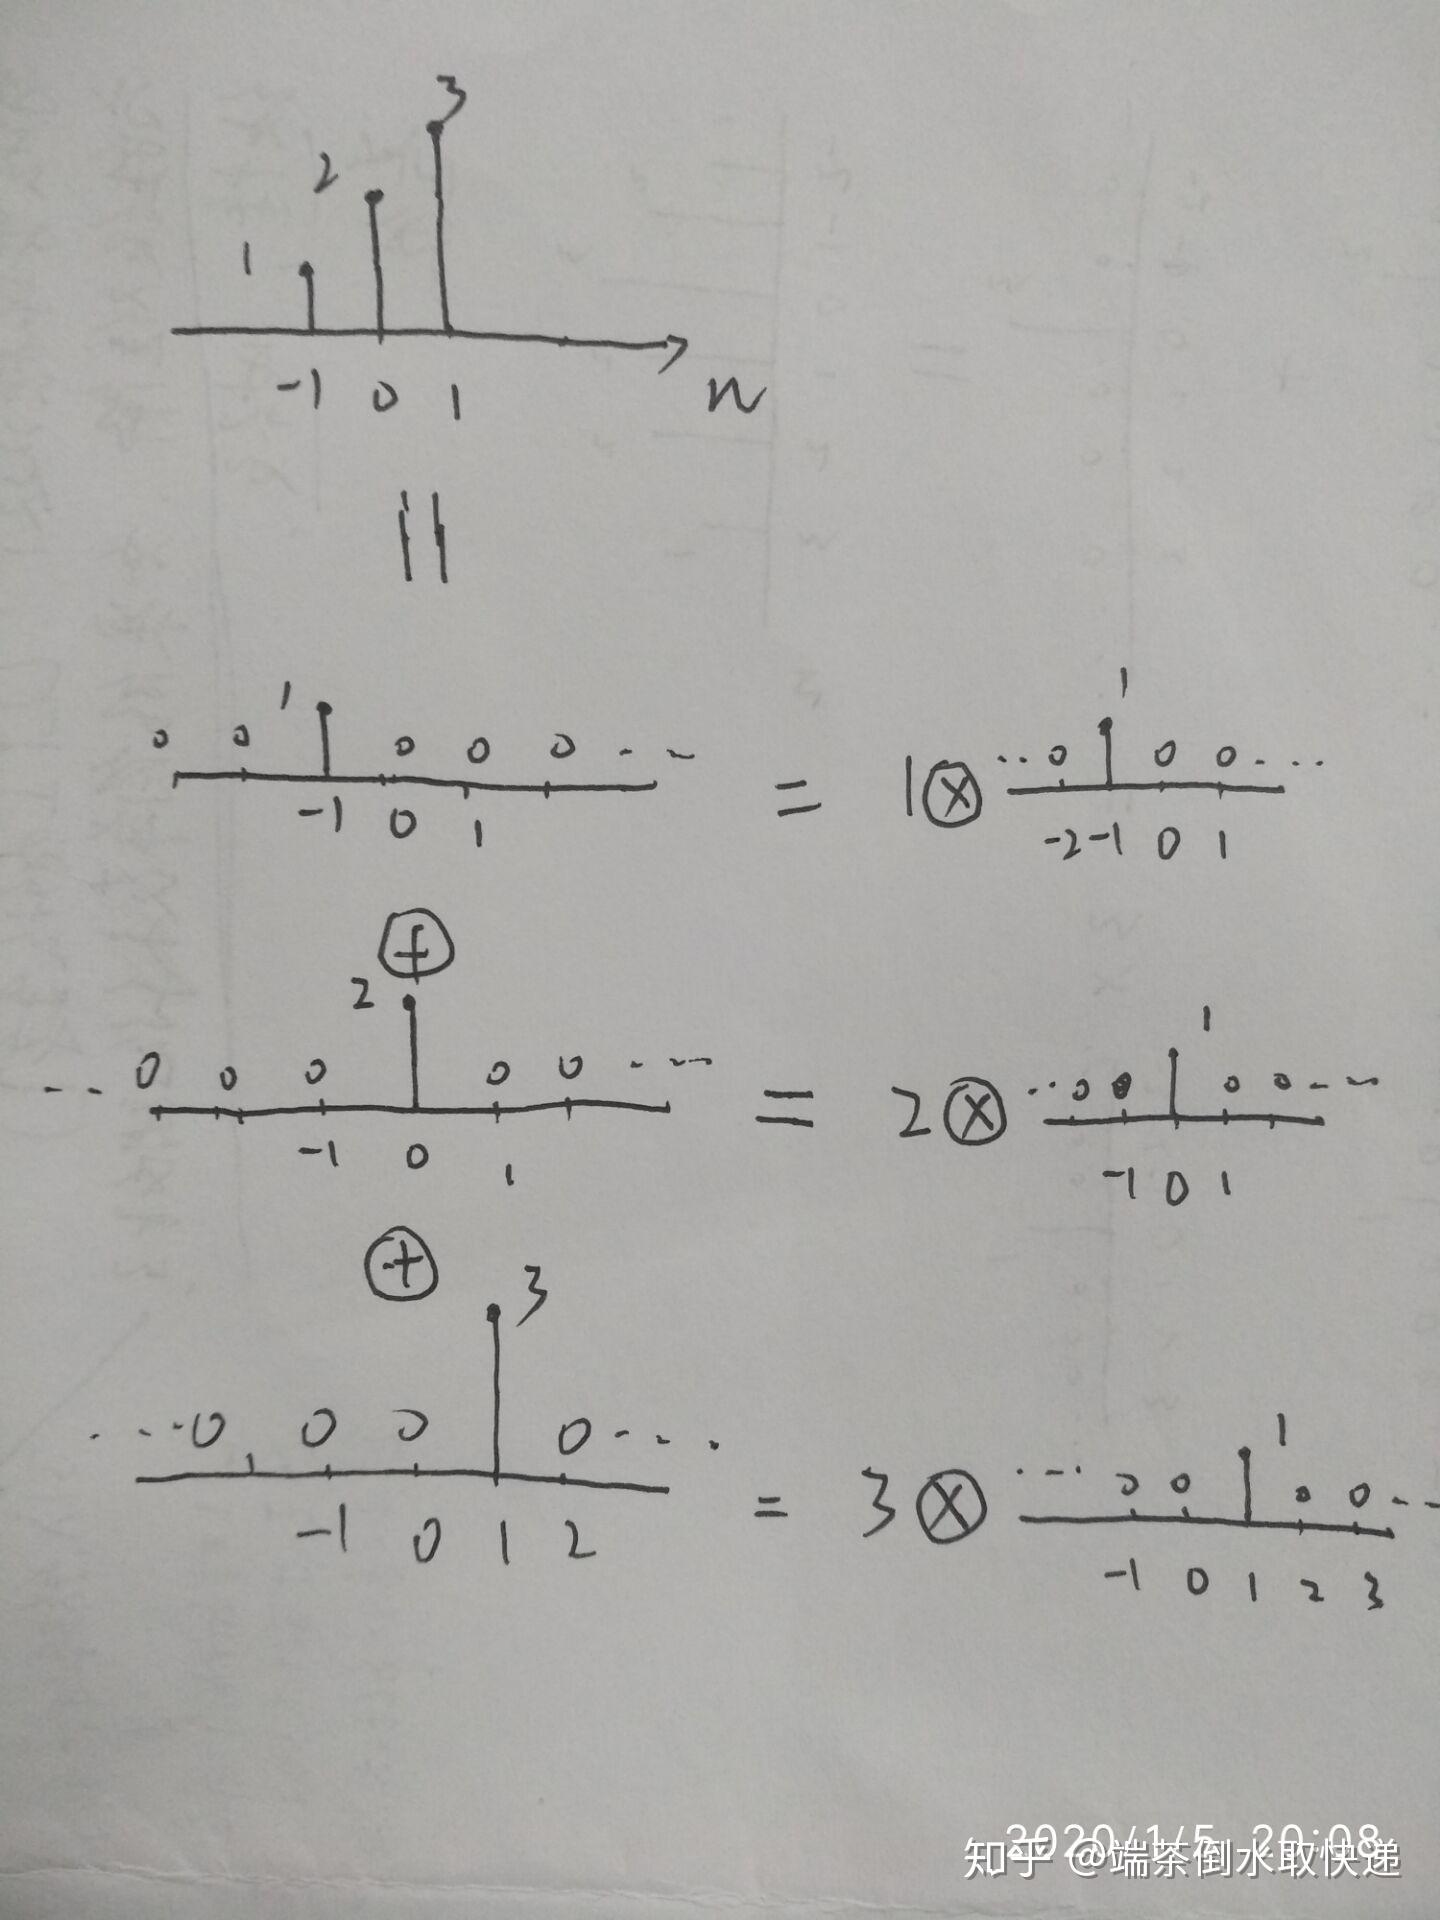 3
2
1
-1 0 1 n
||
1 1
0 0 0 0 0 ... = 1⊗ ..0 0 0 ...
-1 0 1 -2 -1 0 1
⊕
2 1
-- 0 0 0 0 0 ... = 2⊗ ..0 0 0 0 ...
-1 0 1 -1 0 1
⊕ 3
...0 0 0 0 ... = 3⊗ ... 0 0 1 0 0 --
-1 0 1 2 -1 0 1 2 3
2020/1/5 20:08
知乎 @端茶倒水取快递